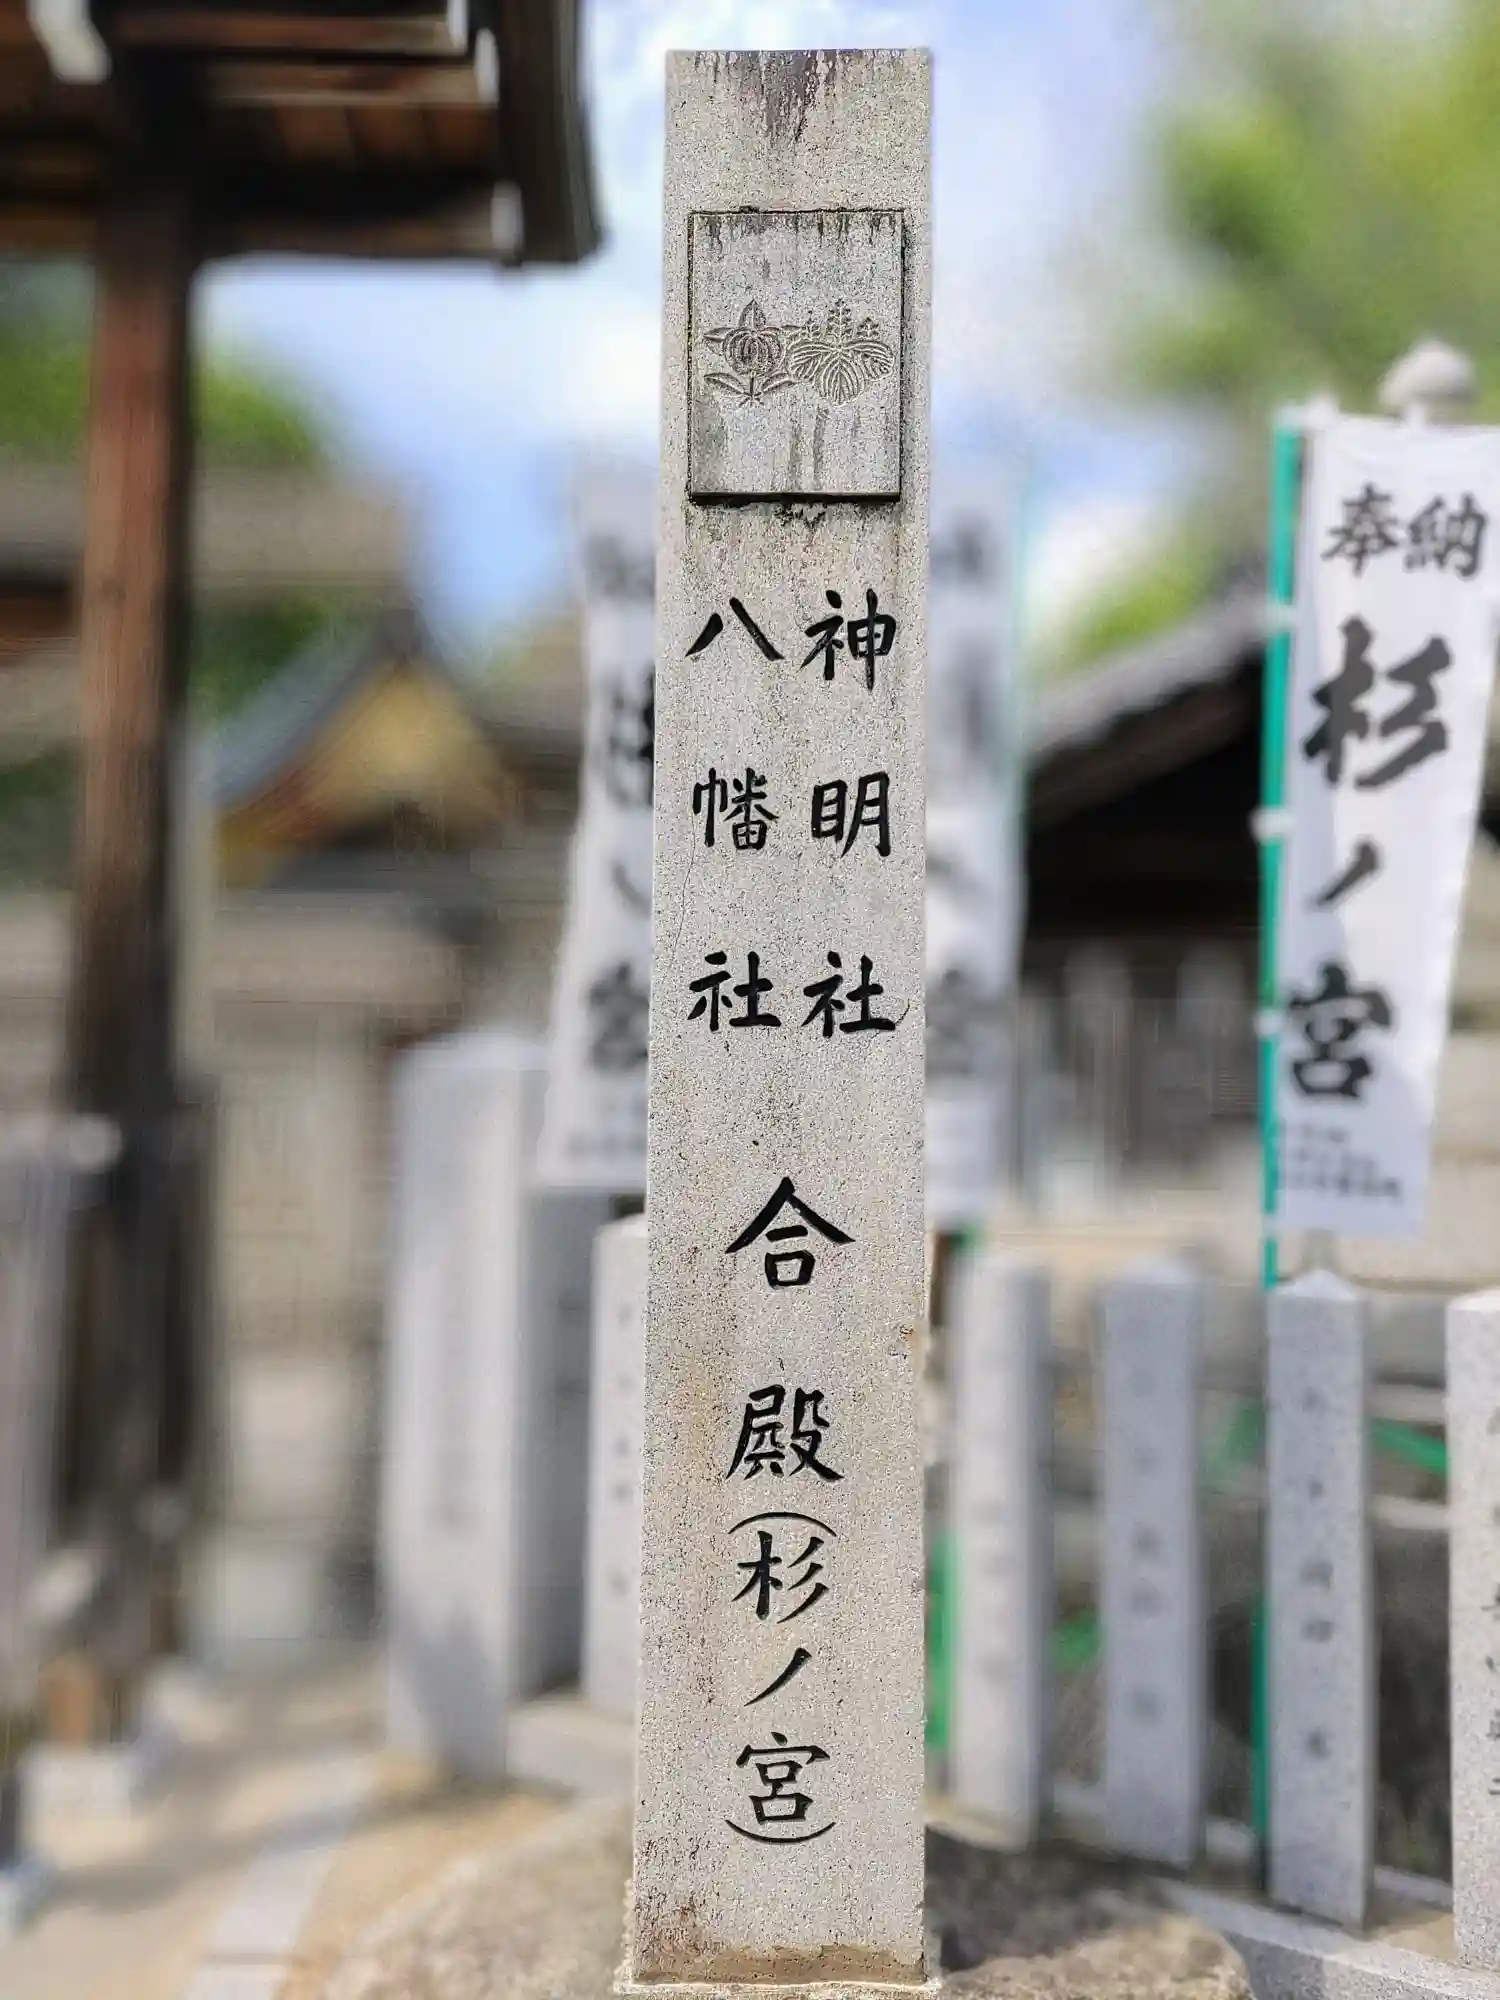 神明社
八幡社
合殿(杉ノ宮)
奉納
杉ノ宮